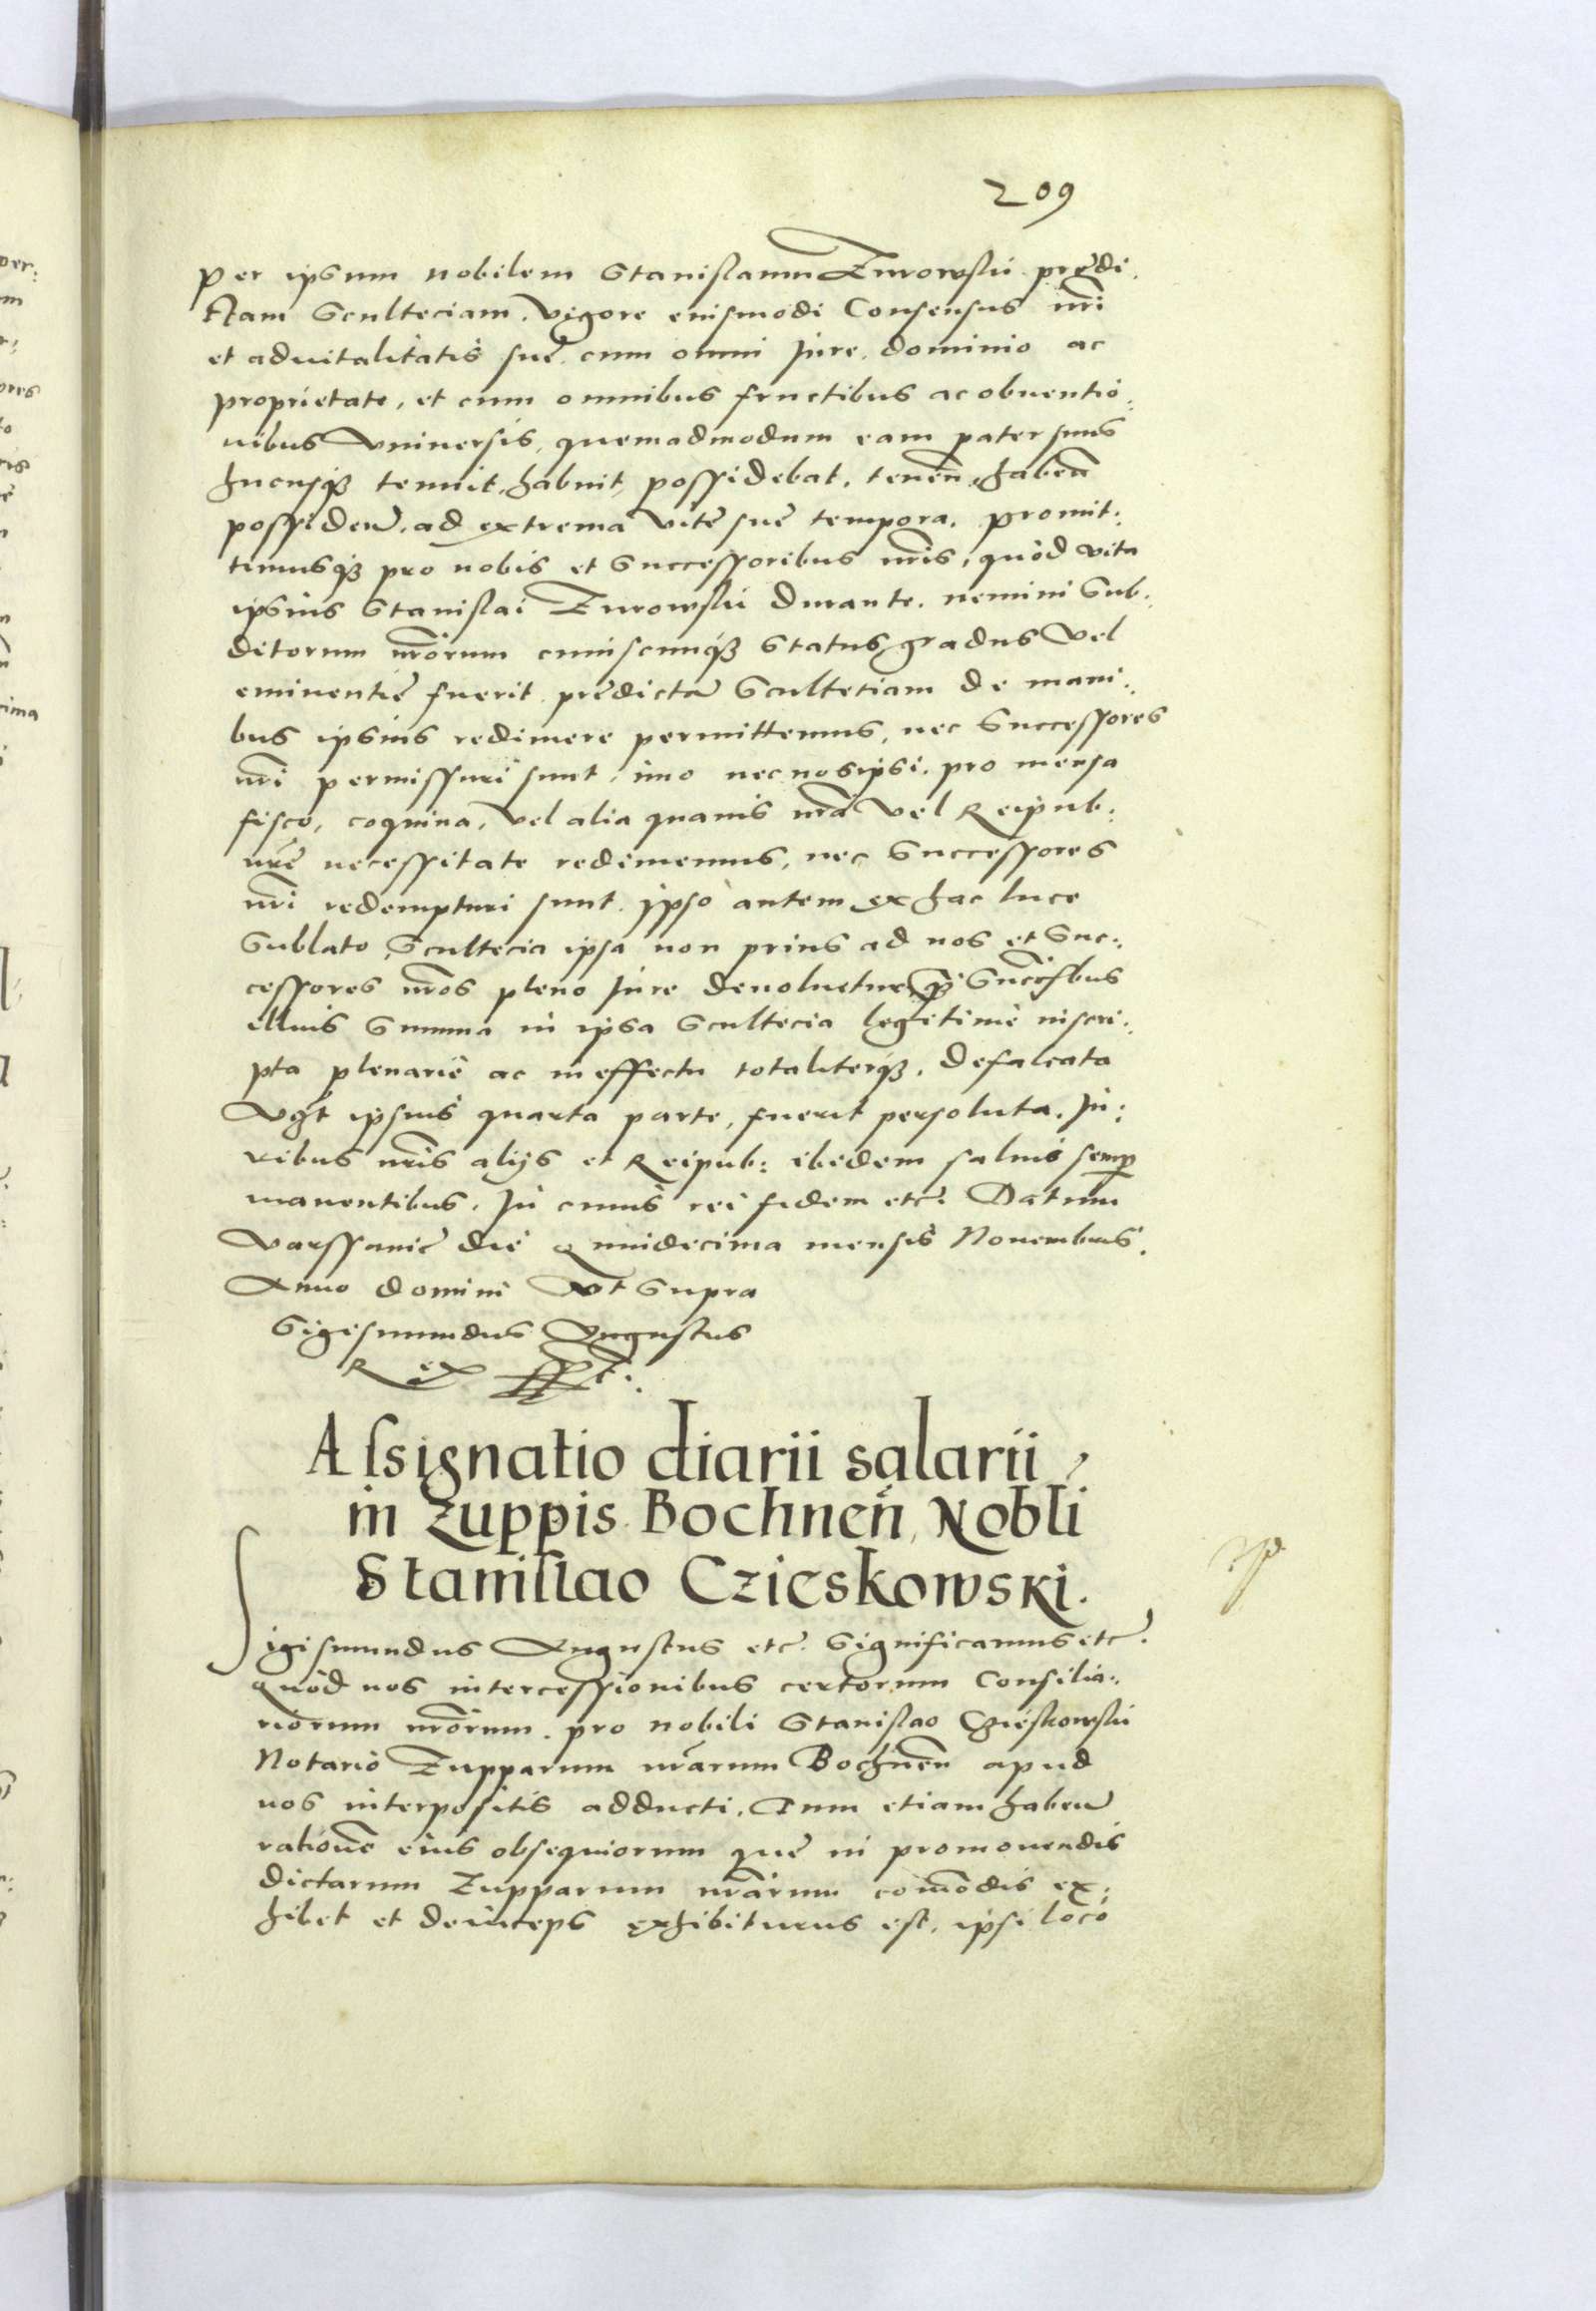 209
per ipsum nobilem Stanislaum Zurowskii predi.
ctam Sculteciam, vigore euismodi Consensus nri
et aduitalitatis sue cum omni iure, dominio ac
proprietate, et cum omnibus fructibus ac obuentio:
nibus vniuersis, quemadmodum eam pater suus
hucusq tenuit, habuit, possidebat, tenen, haben
possiden, ad extrema vite sue tempora. promit:
timusq pro nobis et Successoribus nris, quòd vita
ipsius Stanislai Zurowskii durante, nemini Sub:
ditorum nrorum cuiuscunq Status, gradus vel
eminentie fuerit, predicta Scultetiam de mani:
bus ipsius redimere permittemus, nec Successores
nri permissuri sunt, imo nec nosipsi, pro mensa
fisco, coquina, vel alia quauis nra vel Reipub:
nre necessitate redimemus, nec Successores
nri redempturi sunt. Ipso autem ex hac luce
Sublato, Scultecia ipsa non prius ad nos et Suc:
cessores nros pleno iure deuoluetur, Succesbus
illius Summa in ipsa Scultecia legitime inscri:
pta plenarie ac in effectu totaliterq, defalcata
ipsius quarta parte, fuerit persoluta. Iu:
ribus nris alijs et Reipub: ibidem saluis semp
manentibus. In cuius rei fidem etc. Datum
Varssauie die Quindecima mensis Nouembris.
Anno domini Vt Supra
Sigismundus Augustus
Rex
Assignatio diarii salarii
in Zuppis Bochnen, Nobli
Stanislao Czieskowski.
Sigismundus Augustus etc. Significamus etc.
Quòd nos intercessionibus certorum Consilia:
riorum nrorum. pro nobili Stanislao Czieskowskii
Notario Zupparum nrarum Bochnen apud
nos interpositis adducti, Tum etiam haben
ratione eius obsequiorum que in promouendis
dictarum Zupparum nrarum comodis ex:
hibet et deinceps exhibiturus est, ipsi loco